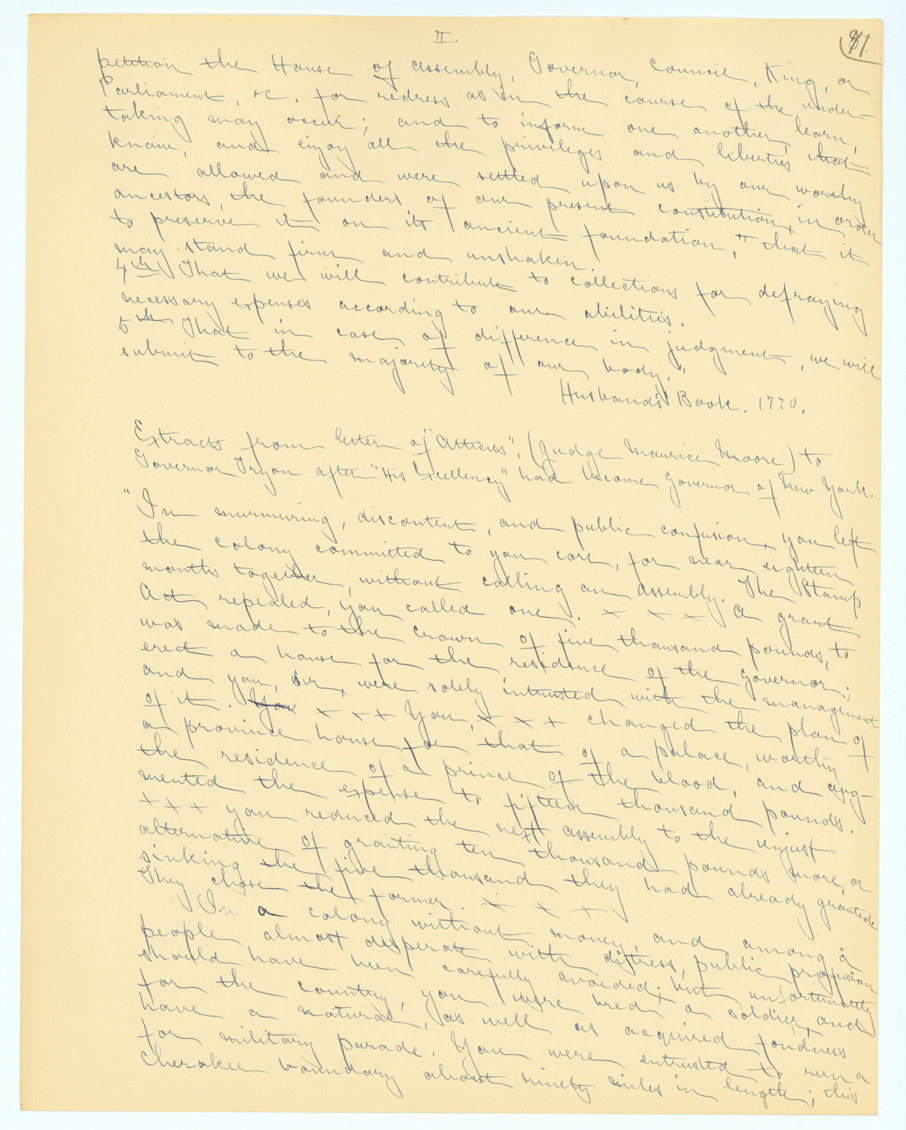 II.
81.
petition the House of Assembly, Governor, Council, King, or
Parliament, &c. for redress as in the course of the under-
taking may occur; and to inform one another, learn,
know, and enjoy all the privileges and liberties that
are allowed and were settled upon us by our worthy
ancestors, the founders of our present constitution, in order
to preserve it on its ancient foundation, that it
may stand firm and unshaken.
4th That we will contribute to collections for defraying
necessary expenses according to our abilities.
5th That in case of difference in judgment, we will
submit to the majority of our body."
Husband's Book. 1770.
Extracts from letter of "Atticus", (Judge Maurice Moore) to
Governor Tryon after "His Excellency" had become Governor of New York.
"In murmuring, discontent, and public confusion, you left
the colony committed to you care, for near eighteen
months together, without calling an Assembly. The Stamp
Act repealed, you called one. x x x A grant
was made to the Crown of five thousand pounds, to
erect a house for the residence of the Governor;
and you, Sir, were solely intrusted with the management
of it. You x x x You, x x x changed the plan of
a province house for that of a palace, worthy
the residence of a prince of the blood, and aug-
mented the expense to fifteen thousand pounds.
x x x you reduced the next assembly to the unjust
alternative of granting ten thousand pounds more, or
sinking the five thousand they had already granted.
They chose the former. x x x
In a colony without money, and among a
people almost desperate with distress, public profusion
should have been carefully avoided; but unfortunately
for the country, you were bred a soldier, and
have a natural, as well as acquired fondness
for military parade. You were entrusted to run a
Cherokee boundary about ninety miles in length; this